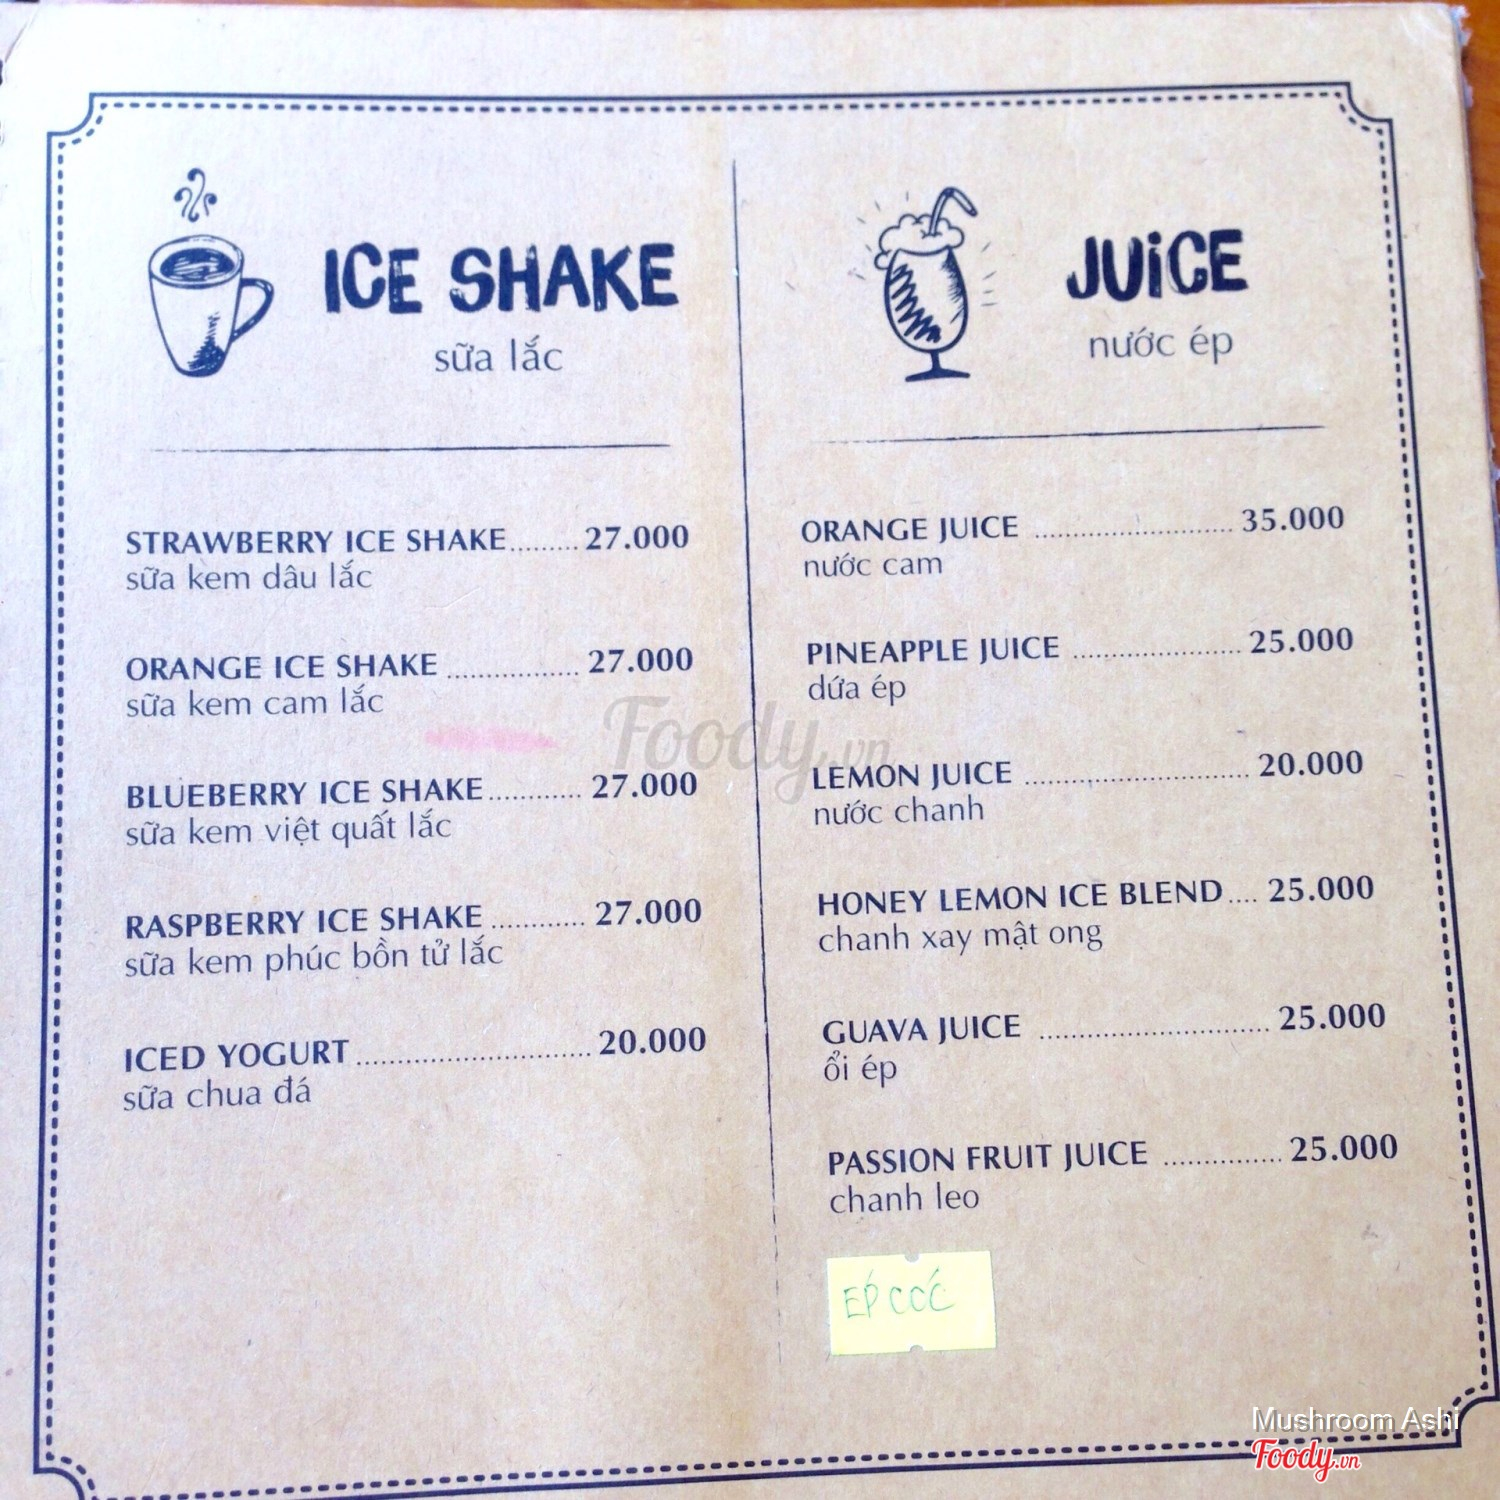 ICE SHAKE
sữa lắc
STRAWBERRY ICE SHAKE......... 27.000
sữa kem dâu lắc
ORANGE ICE SHAKE ................. 27.000
sữa kem cam lắc
BLUEBERRY ICE SHAKE............ 27.000
sữa kem việt quất lắc
RASPBERRY ICE SHAKE ............ 27.000
sữa kem phúc bồn tử lắc
ICED YOGURT .............................. 20.000
sữa chua đá
JUiCE
nước ép
ORANGE JUICE .......................... 35.000
nước cam
PINEAPPLE JUICE ...................... 25.000
dứa ép
LEMON JUICE ............................. 20.000
nước chanh
HONEY LEMON ICE BLEND.... 25.000
chanh xay mật ong
GUAVA JUICE .............................. 25.000
ổi ép
PASSION FRUIT JUICE ............... 25.000
chanh leo
ÉP CÓC
Foody.vn
Mushroom Ashi
Foody.vn